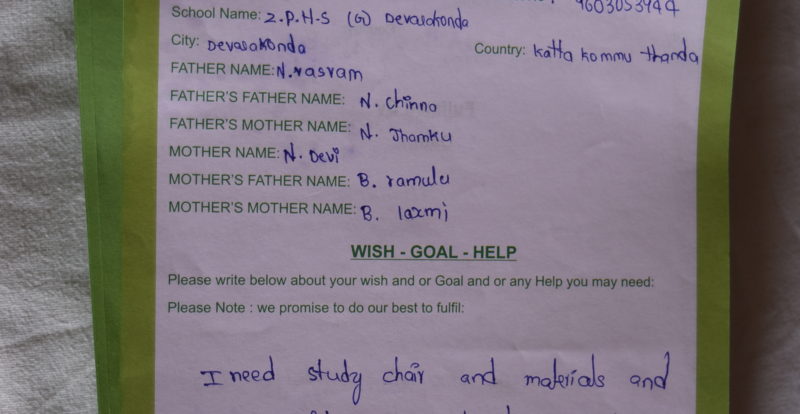 9603053944
School Name: Z.P.H-S (G) Devarakonda
City: Devarakonda
Country: Katta kommu thanda
FATHER NAME: N. rasram
FATHER'S FATHER NAME: N. chinna
FATHER'S MOTHER NAME: N. Jhamku
MOTHER NAME: N. Devi
MOTHER'S FATHER NAME: B. ramulu
MOTHER'S MOTHER NAME: B. laxmi
WISH - GOAL - HELP
Please write below about your wish and or Goal and or any Help you may need:
Please Note : we promise to do our best to fulfil:
I need study chair and materials and